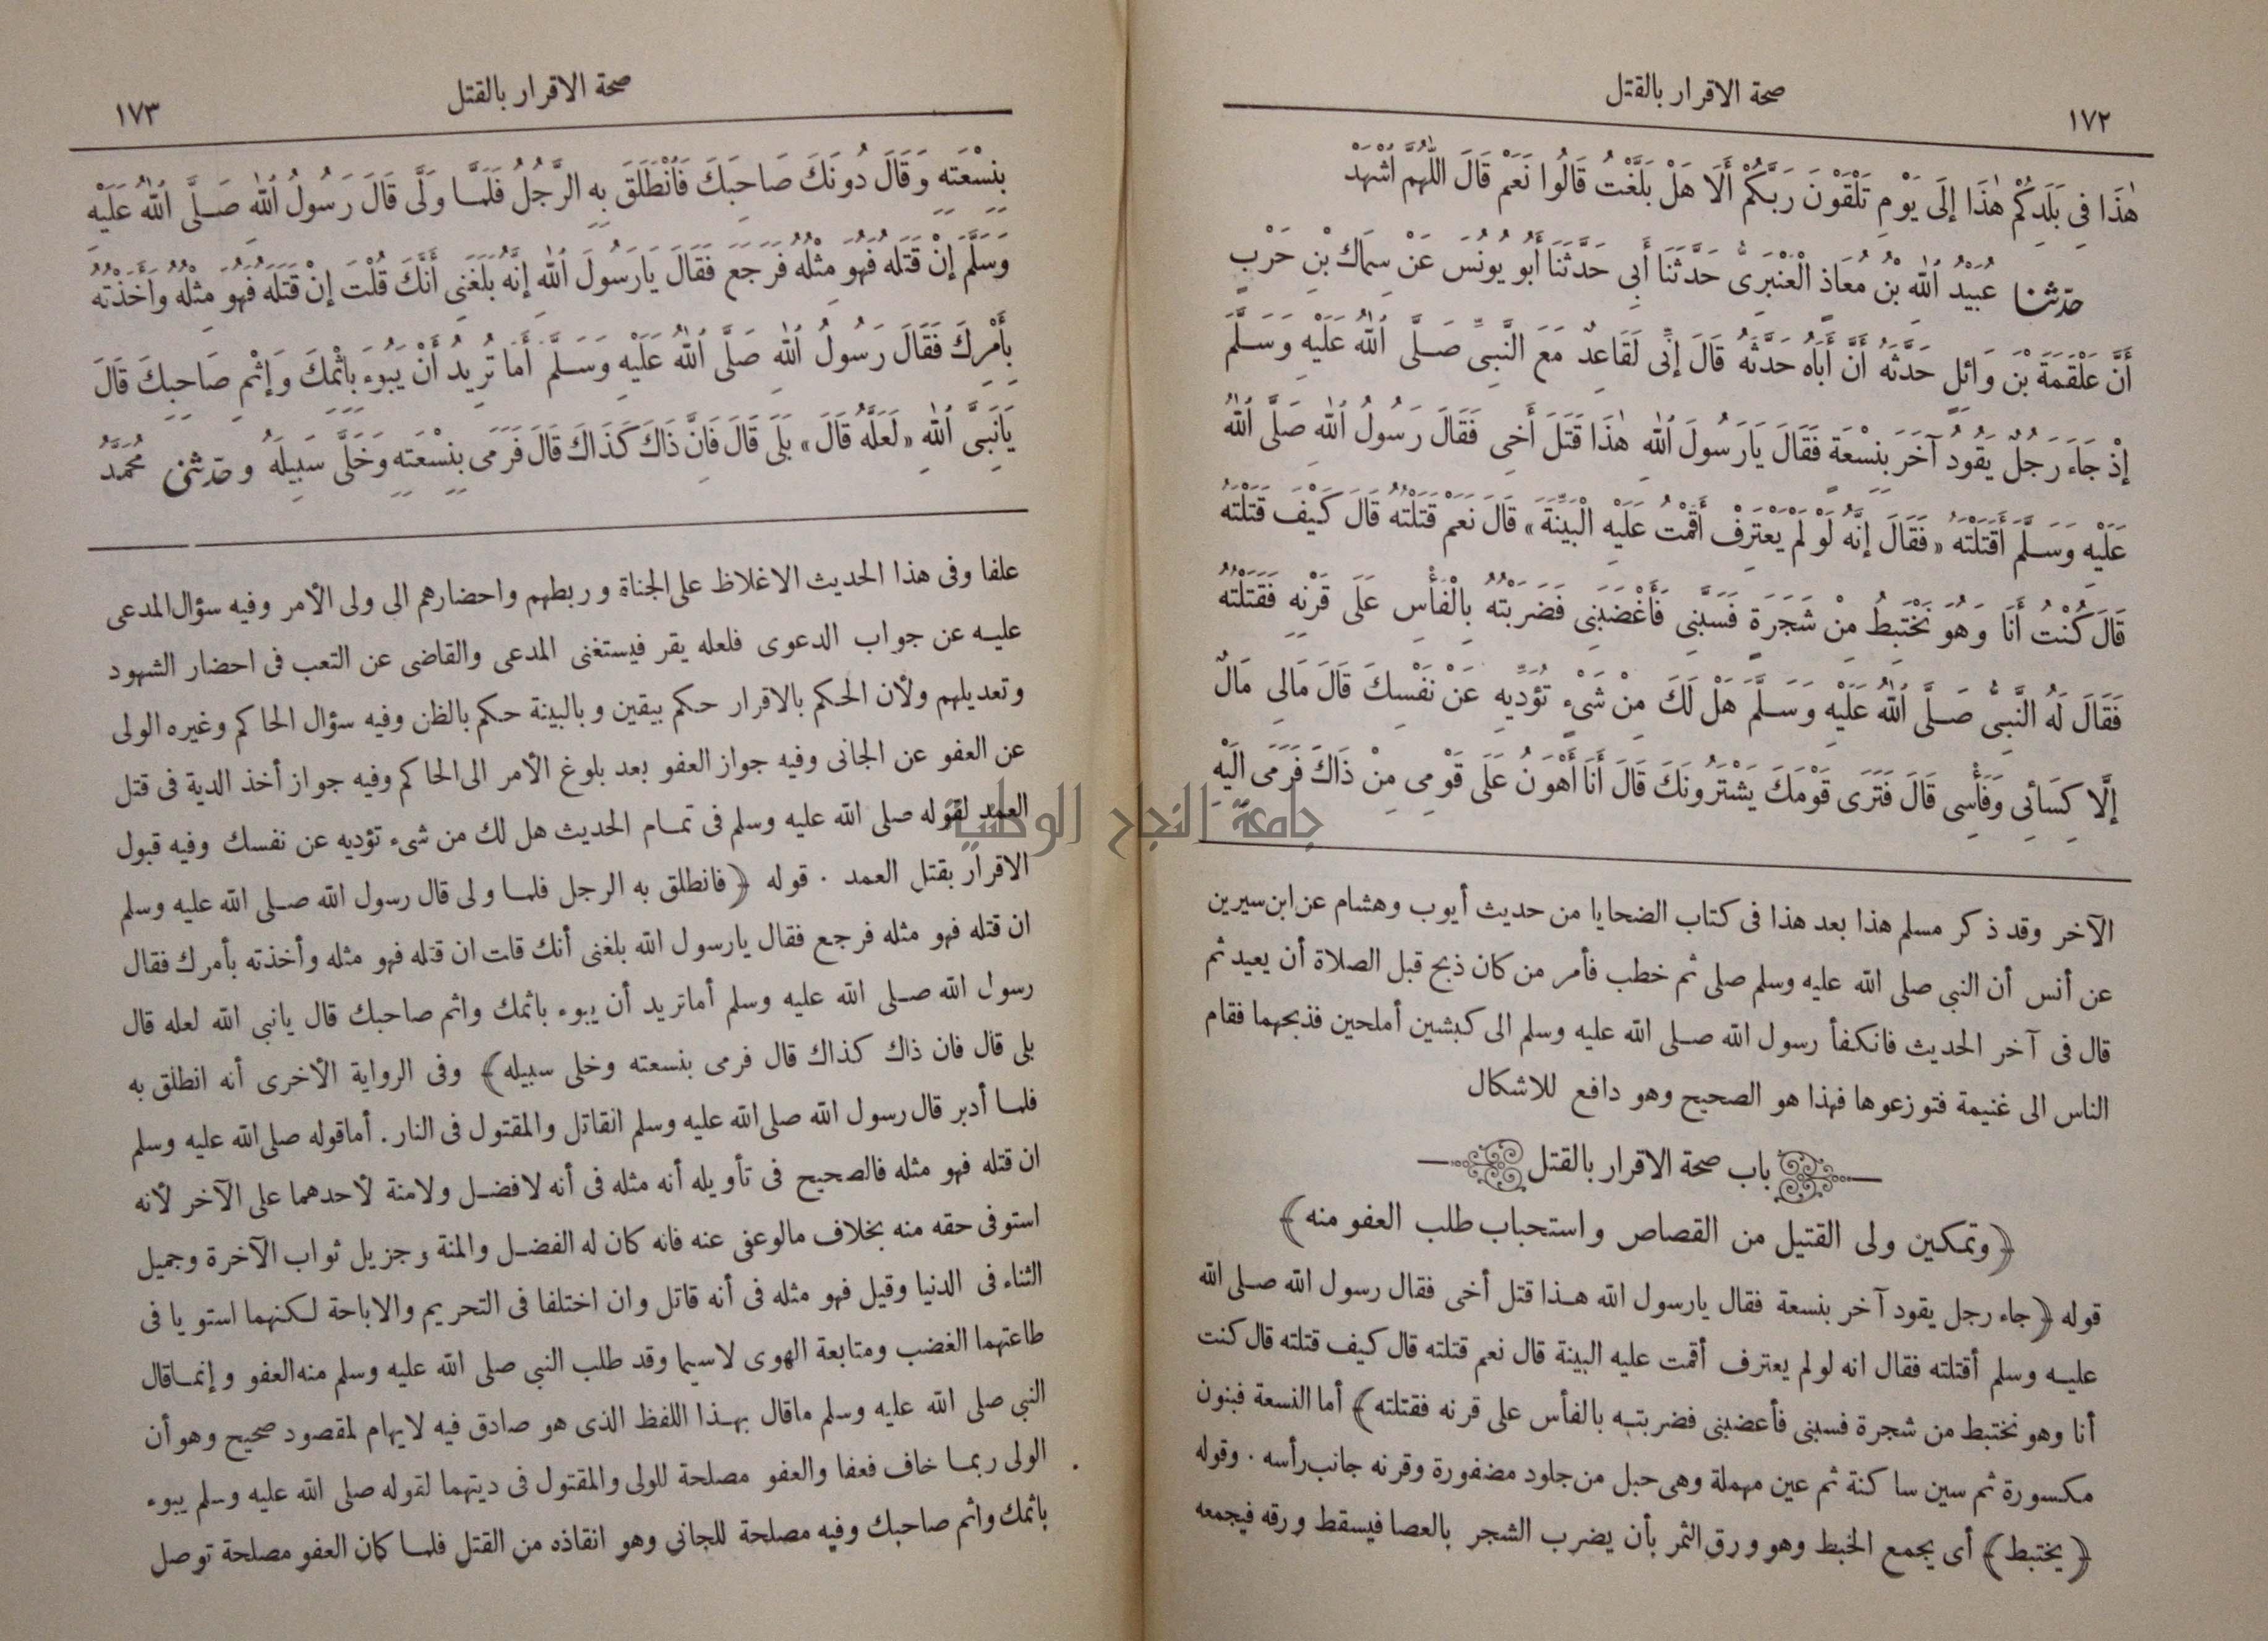 ١٧٢
صحة الاقرار بالقتل
هٰذَا فِى بَلَدِكُمْ هٰذَا إلَى يَوْمِ تَلْقَوْنَ رَبَّكُمْ أَلَا هَلْ بَلَّغْتُ قَالُوا نَعَمْ قَالَ اللّٰهُمَّ اَشْهَدْ
حدّثنا عُبَيْدُ اَللّٰهِ بْنُ مُعَاذٍ الْعَنْبَرِىُّ حَدَّثَنَا أَبِى حَدَّثَنَا أَبُو يُونُسَ عَنْ سِمَاكِ بْنِ حَرْبٍ
أَنَّ عَلْقَمَةَ بْنَ وَائِلٍ حَدَّثَهُ أَنَّ أَبَاهُ حَدَّثَهُ قَالَ إنِّى لَقَاعِدٌ مَعَ النَّبِىِّ صَلَّى اَللّٰهُ عَلَيْهِ وَسَلَّمَ
إذْ جَاءَ رَجُلٌ يَقُودُ آخَرَ بِنِسْعَةٍ فَقَالَ يَارَسُولَ اَللّٰهِ هٰذَا قَتَلَ أَخِى فَقَالَ رَسُولُ اَللّٰهِ صَلَّى اَللّٰهُ
عَلَيْهِ وَسَلَّمَ أَقَتَلْتَهُ «فَقَالَ إنَّهُ لَوْ لَمْ يَعْتَرِفْ أَقَمْتُ عَلَيْهِ الْبَيِّنَةَ» قَالَ نَعَمْ قَتَلْتُهُ قَالَ كَيْفَ قَتَلْتَهُ
قَالَ كُنْتُ أَنَا وَهُوَ نَخْتَبِطُ مِنْ شَجَرَةٍ فَسَبَّنِى فَأَغْضَبَنِى فَضَرَبْتُهُ بِالْفَأْسِ عَلَى قَرْنِهِ فَقَتَلْتُهُ
فَقَالَ لَهُ النَّبِىُّ صَلَّى اَللّٰهُ عَلَيْهِ وَسَلَّمَ هَلْ لَكَ مِنْ شَىْءٍ تُؤَدِّيهِ عَنْ نَفْسِكَ قَالَ مَالِى مَالٌ
إلَّا كِسَائِى وَفَأْسِى قَالَ فَتَرَى قَوْمَكَ يَشْتَرُونَكَ قَالَ أَنَا أَهْوَنُ عَلَى قَوْمِى مِنْ ذَاكَ فَرَمَى الَيْهِ
الآخر وقد ذكر مسلم هذا بعد هذا فى كتاب الضحايا من حديث أيوب وهشام عن ابن سيرين
عن أنس أن النبى صلى الله عليه وسلم صلى ثم خطب فأمر من كان ذبح قبل الصلاة أن يعيد ثم
قال فى آخر الحديث فانكفأ رسول الله صلى الله عليه وسلم الى كبشين أملحين فذبحهما فقام
الناس الى غنيمة فتوزعوها فهذا هو الصحيح وهو دافع للاشكال
باب صحة الاقرار بالقتل
﴿وتمكين ولى القتيل من القصاص واستحباب طلب العفو منه﴾
قوله ﴿جاء رجل يقود آخر بنسعة فقال يارسول الله هذا قتل أخى فقال رسول الله صلى الله
عليه وسلم أقتلته فقال انه لو لم يعترف أقمت عليه البينة قال نعم قتلته قال كيف قتلته قال كنت
أنا وهو نختبط من شجرة فسبنى فأغضبنى فضربته بالفأس على قرنه فقتلته﴾ أما النسعة فبنون
مكسورة ثم سين ساكنة ثم عين مهملة وهى حبل من جلود مضفورة وقرنه جانب رأسه . وقوله
﴿يختبط﴾ أى يجمع الخبط وهو ورق الثمر بأن يضرب الشجر بالعصا فيسقط ورقه فيجمعه
صحة الاقرار بالقتل
١٧٣
بِنِسْعَتِهِ وَقَالَ دُونَكَ صَاحِبَكَ فَانْطَلَقَ بِهِ الرَّجُلُ فَلَمَّا وَلَّى قَالَ رَسُولُ اَللّٰهِ صَلَّى اَللّٰهُ عَلَيْهِ
وَسَلَّمَ إنْ قَتَلَهُ فَهُوَ مِثْلُهُ فَرَجَعَ فَقَالَ يَارَسُولَ اَللّٰهِ إنَّهُ بَلَغَنِى أَنَّكَ قُلْتَ إنْ قَتَلَهُ فَهُوَ مِثْلُهُ وَأَخَذْتُهُ
بِأَمْرِكَ فَقَالَ رَسُولُ اَللّٰهِ صَلَّى اَللّٰهُ عَلَيْهِ وَسَلَّمَ أَمَا تُرِيدُ أَنْ يَبُوءَ بِاثْمِكَ وَإثْمِ صَاحِبِكَ قَالَ
يَانَبِىَّ اَللّٰهِ «لَعَلَّهُ قَالَ» بَلَى قَالَ فَانَّ ذَاكَ كَذَاكَ قَالَ فَرَمَى بِنِسْعَتِهِ وَخَلَّى سَبِيلَهُ وحدّثنى مُحَمَّدُ
علفا وفى هذا الحديث الاغلاظ على الجناة وربطهم واحضارهم الى ولى الأمر وفيه سؤال المدعى
عليه عن جواب الدعوى فلعله يقر فيستغنى المدعى والقاضى عن التعب فى احضار الشهود
وتعديلهم ولأن الحكم بالاقرار حكم بيقين وبالبينة حكم بالظن وفيه سؤال الحاكم وغيره الولى
عن العفو عن الجانى وفيه جواز العفو بعد بلوغ الأمر الى الحاكم وفيه جواز أخذ الدية فى قتل
العمد لقوله صلى الله عليه وسلم فى تمام الحديث هل لك من شىء تؤديه عن نفسك وفيه قبول
الاقرار بقتل العمد . قوله ﴿فانطلق به الرجل فلما ولى قال رسول الله صلى الله عليه وسلم
ان قتله فهو مثله فرجع فقال يارسول الله بلغنى أنك قات ان قتله فهو مثله وأخذته بأمرك فقال
رسول الله صلى الله عليه وسلم أماتريد أن يبوء باثمك واثم صاحبك قال يانبى الله لعله قال
بلى قال فان ذاك كذاك قال فرمى بنسعته وخلى سبيله﴾ وفى الرواية الأخرى أنه انطلق به
فلما أدبر قال رسول الله صلى الله عليه وسلم القاتل والمقتول فى النار. أماقوله صلى الله عليه وسلم
ان قتله فهو مثله فالصحيح فى تأويله أنه مثله فى أنه لافضل ولامنة لأحدهما على الآخر لأنه
استوفى حقه منه بخلاف مالوعفى عنه فانه كان له الفضل والمنة وجزيل ثواب الآخرة وجميل
الثناء فى الدنيا وقيل فهو مثله فى أنه قاتل وان اختلفا فى التحريم والاباحة لكنهما استويا فى
طاعتهما الغضب ومتابعة الهوى لاسيما وقد طلب النبى صلى الله عليه وسلم منه العفو وإنماقال
النبى صلى الله عليه وسلم ماقال بهذا اللفظ الذى هو صادق فيه لايهام لمقصود صحيح وهو أن
الولى ربما خاف فعفا والعفو مصلحة للولى والمقتول فى ديتهما لقوله صلى الله عليه وسلم يبوء
باثمك واثم صاحبك وفيه مصلحة للجانى وهو انقاذه من القتل فلما كان العفو مصلحة توصل
جامعة النجاح الوطنية